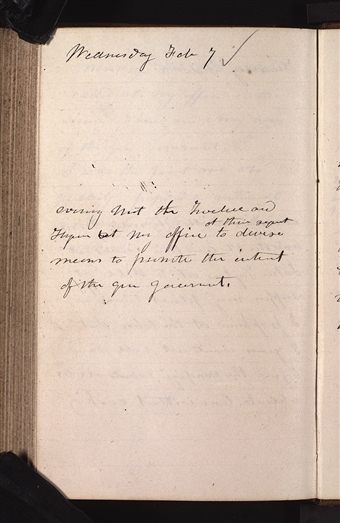 Wednesday Feb 7 ✓
evening met the Twelve and
at their request
Hyrum at my office to devise
means to promote the interest
of the gen government.